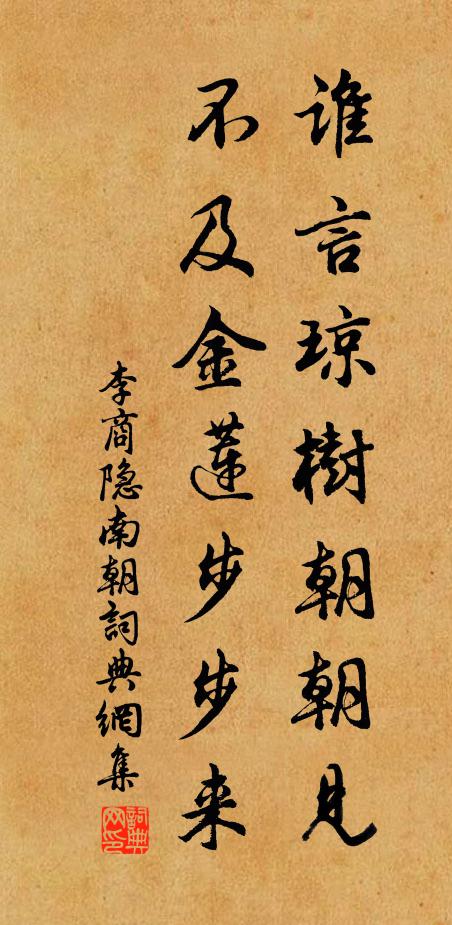 谁言琼樹朝朝見
不及金蓮步步来
李商隐南朝詞典網集
詞典網印